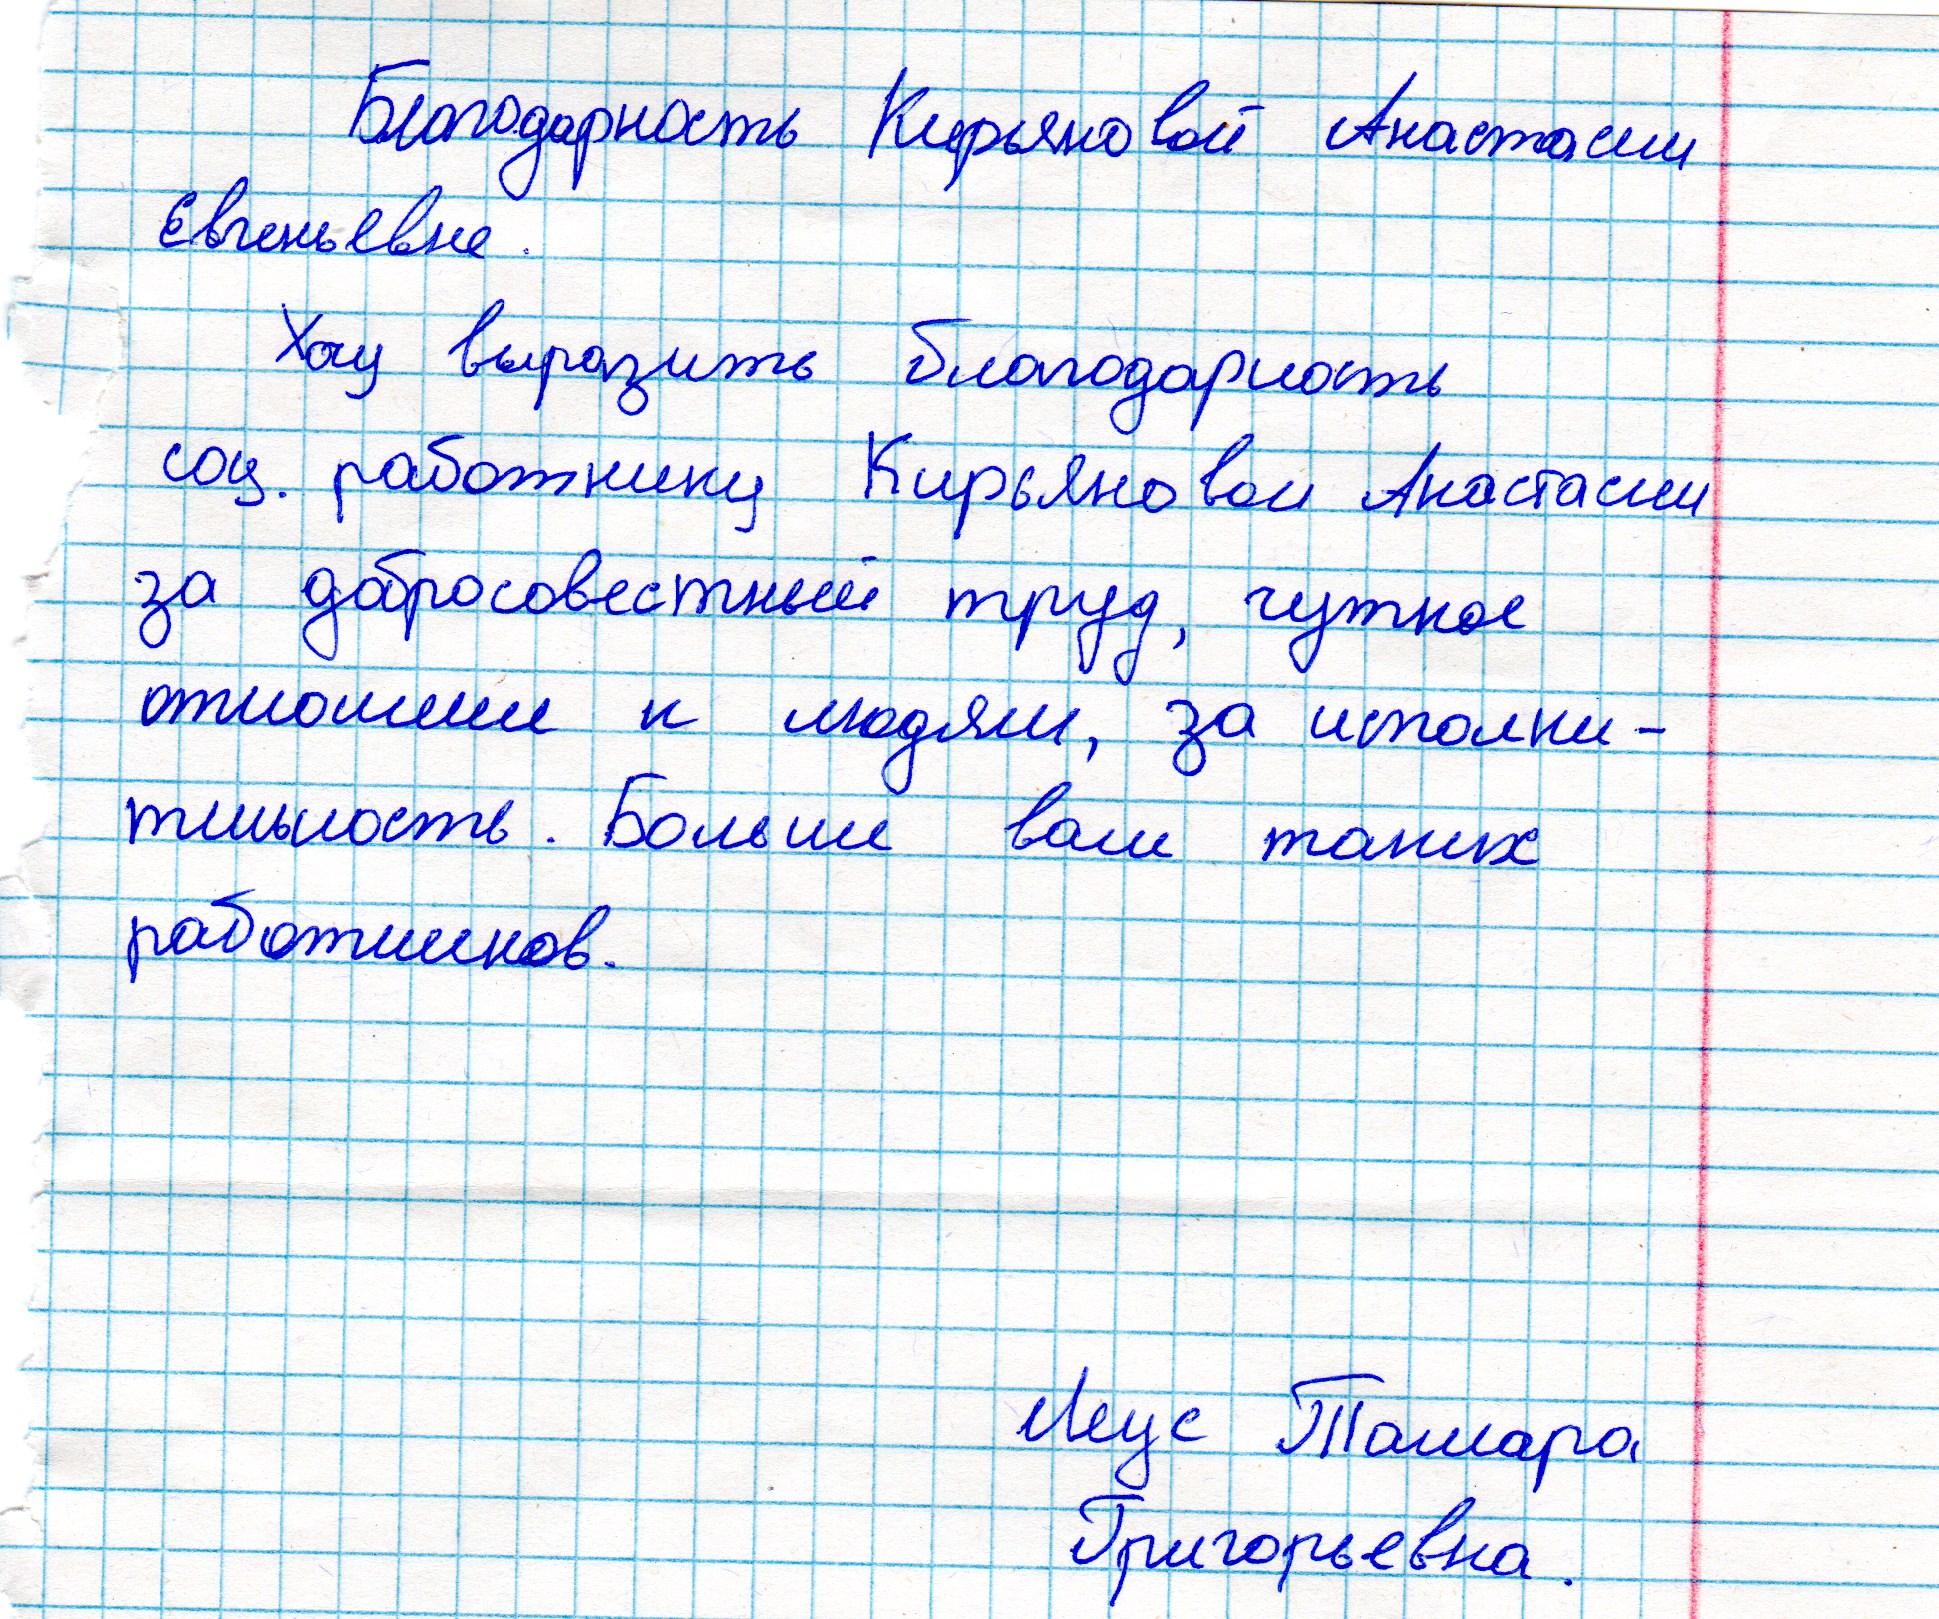 Благодарность Кирьяновой Анастасии
Евгеньевне.
Хочу выразить благодарность
соц. работнику Кирьяновой Анастасии
за добросовестный труд, чуткое
отношение к людям, за исполни-
тельность. Больше вам таких
работников.
Леус Тамара
Григорьевна.